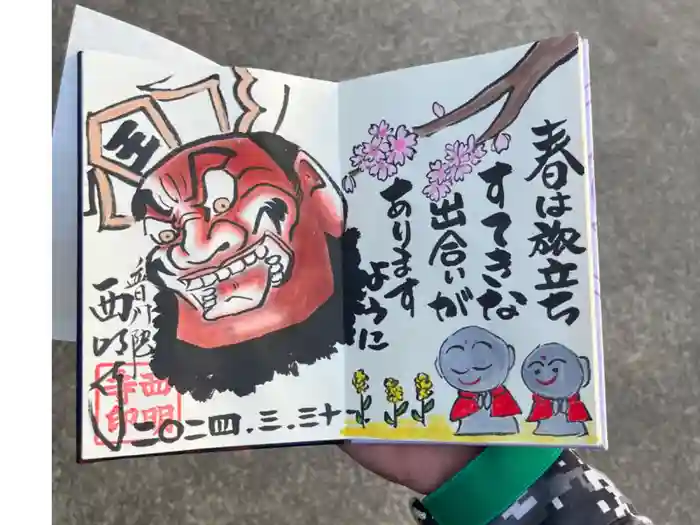 春は旅立ち
すてきな
出合いが
あります
ように
王
普門院
西明寺
西明
寺印
二〇二四.三.三十一